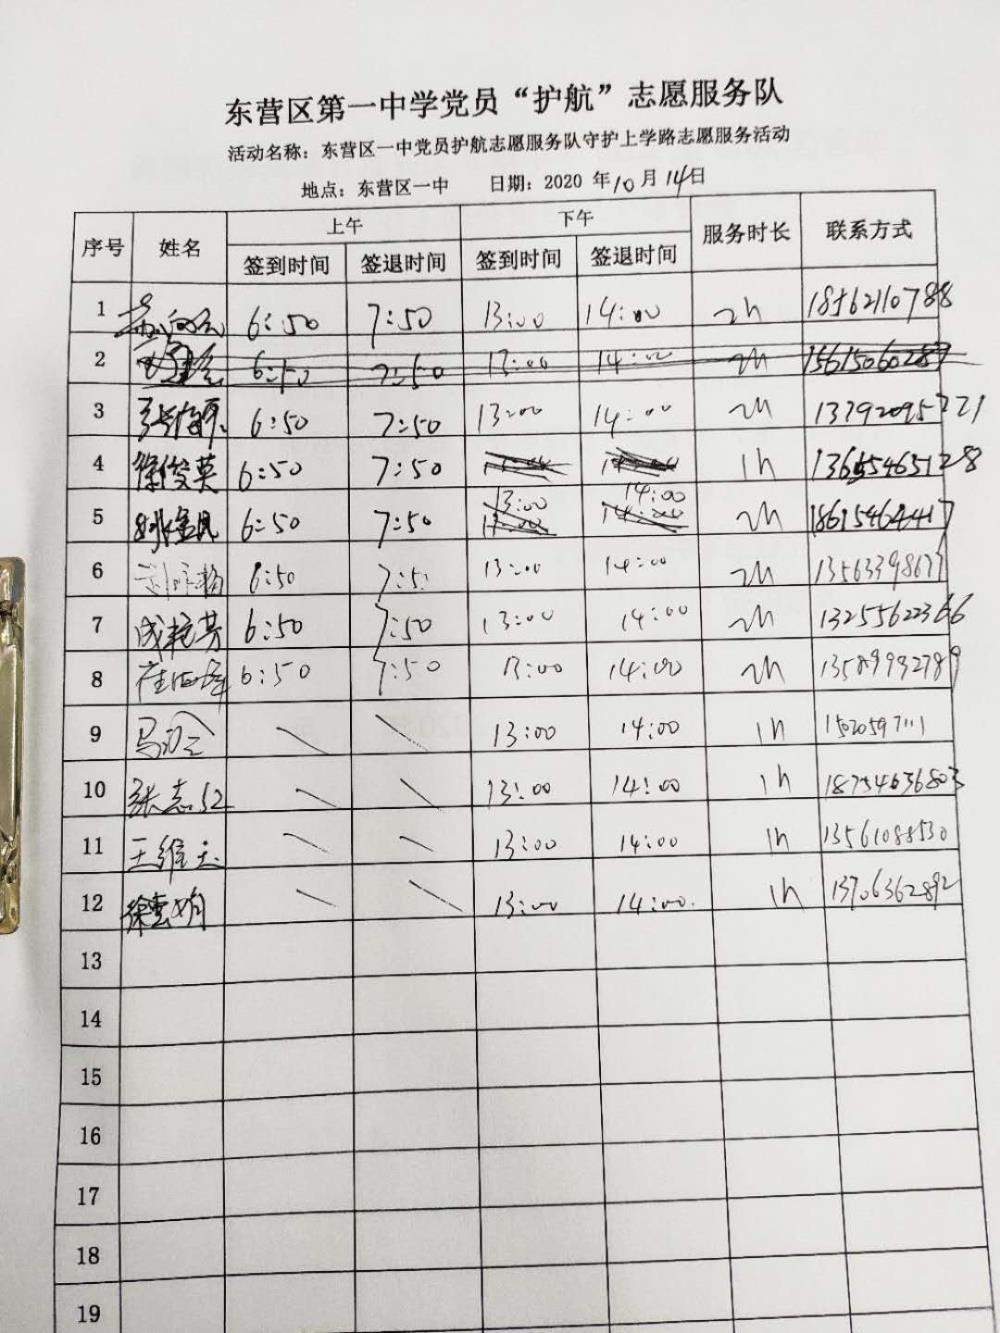 东营区第一中学党员“护航”志愿服务队
活动名称：东营区一中党员护航志愿服务队守护上学路志愿服务活动
地点：东营区一中 日期：2020 年10月14日
序号 姓名 上午 下午 服务时长 联系方式
签到时间 签退时间 签到时间 签退时间
1 6:50 7:50 13:00 14:00 2h 18562110788
2 6:50 7:50 13:00 14:00 2h
3 6:50 7:50 13:00 14:00 2h 13792095221
4 徐俊英 6:50 7:50 1h 13655465128
13:00 14:00
5 6:50 7:50 13:00 14:00 2h 18615464417
6 6:50 7:5 13:00 14:00 2h
7 成艳芳 6:50 7:50 13:00 14:00 2h 13255622366
8 6:50 7:50 13:00 14:00 2h 13589992789
9 13:00 14:00 1h 15020597111
10 张志红 13:00 14:00 1h 18754636803
11 王维玉 13:00 14:00 1h 13561088530
12 徐云娟 13:00 14:00. 1h 13706362892
13
14
15
16
17
18
19